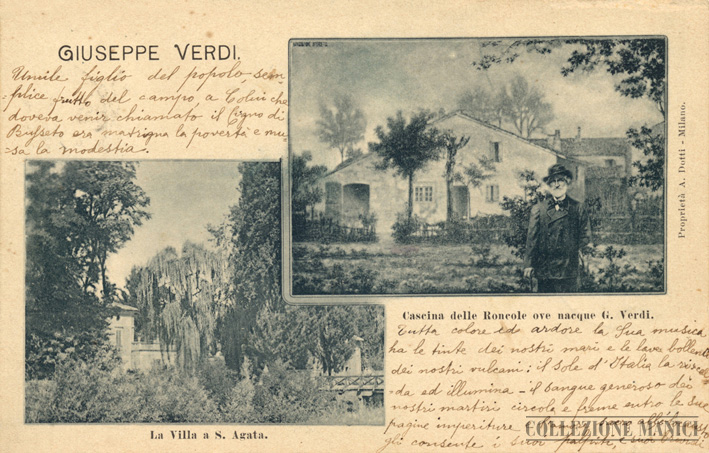 GIUSEPPE VERDI.
Umile figlio del popolo, sem
plice frutto del campo, a Colui che
doveva venir chiamato il Cigno di
Busseto era matrigna la povertà e mu
sa la modestia.
La Villa a S. Agata.
Cascina delle Roncole ove nacque G. Verdi.
Proprietà A. Dotti - Milano.
Tutta colore ed ardore la Sua musica
ha le tinte dei nostri mari e le lave bollenti
dei nostri vulcani: il sole d'Italia la riscal
-da ed illumina - il sangue generoso dei
nostri martiri circola e freme entro le sue
pagine imperiture
gli consente i suoi palpiti, i suoi
COLLEZIONE MANICI